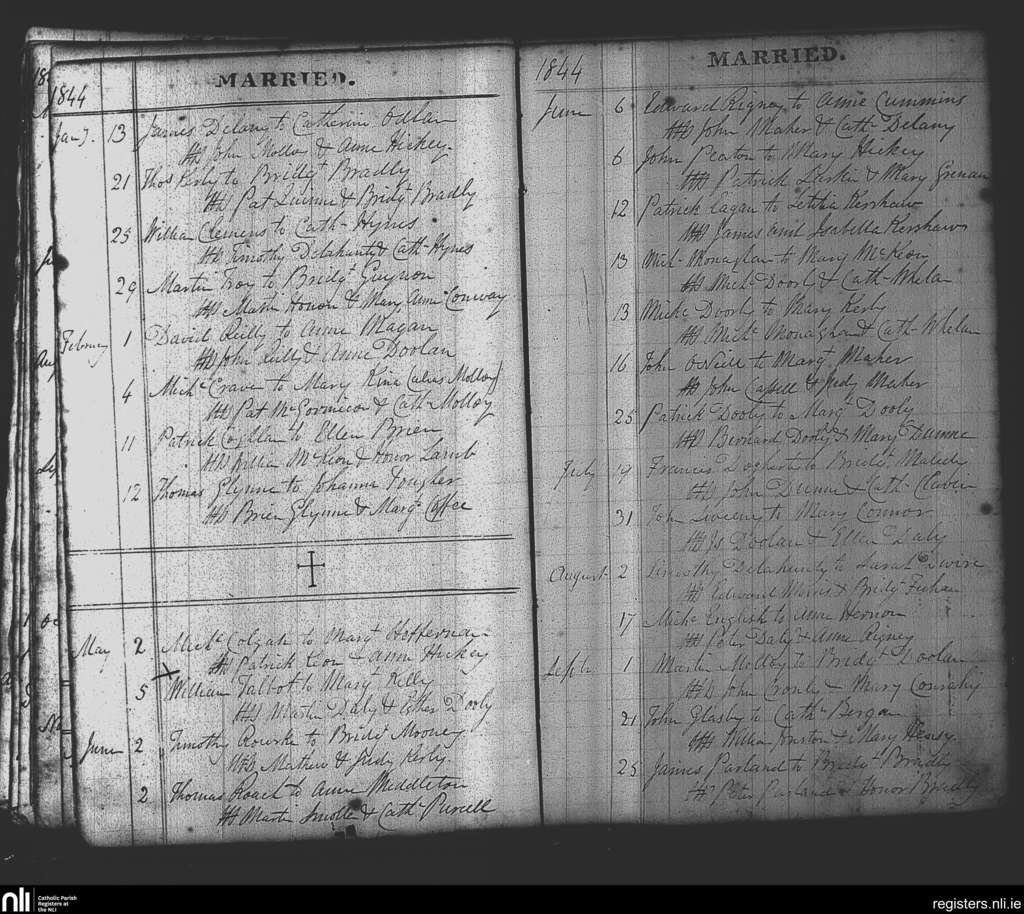 1844
MARRIED.
Jany. 13 James Delany to Catherine Odlan
Ws John Molloy & Anne Hickey.
21 Thos Kerby to Bridgt Bradly
Ws Pat Quinne & Bridgt Bradly
25 William Clemens to Cath- Hynes
Ws Timothy Delahunty & Cath- Hynes
29 Martin Troy to Bridgt Guynon
Ws Martin Honan & Mary Anne Conway
February 1 David Reilly to Anne Magan
Ws John Reilly & Anne Doolan
4 Michl Craven to Mary Kina (alias Molloy)
Ws Pat McGormicon & Cath- Molloy
11 Patrick Coghlan to Ellen Brien
Ws William McKeon & Honor Lamb
12 Thomas Glynne to Johanna Fougher
Ws Brien Glynne & Margt Coffee
May 2 Michl Colgah to Margt Heffernan
Ws Patrick Keon & Anne Hickey
5 William Talbot to Margt Kelly
Ws Martin Daly & Esther Dooly
June 2 Timothy Rourke to Bridgt Mooney
Ws Mathew & Judy Kerby.
2 Thomas Roach to Anne Middleton
Ws Martin & Cath- Purcell
1844
MARRIED.
June 6 Edward Rigney to Anne Cummins
Ws John Maher & Cath- Delany
6 John Peaton to Mary Hickey
Ws Patrick Larkin & Mary Grenan
12 Patrick Eagan to Letitia Kershaw
Ws James and Isabella Kershaw
13 Michl Monaghan to Mary McKeon
Ws Michl Dooly & Cath- Whelan
13 Michl Doorly to Mary Kerby
Ws Michl Monaghan & Cath- Whelan
16 John O'Neill to Margt Maher
Ws John Cassell & Judy Maher
25 Patrick Dooly to Margt Dooly
Ws Bernard Dooly & Mary Dunne
July 19 Francis Dogherty to Bridgt Malady
Ws John Dunne & Cath- Claven
31 John Sweeny to Mary Connor
Ws Js Doolan & Ellen Daly
August 2 Timothy Delahunty to Sarah Dwire
Ws Edward Morris & Bridgt Feehan
17 Michl English to Anne Hernon
Ws Peter Daly & Anne Rigney
Septb 1 Martin Molloy to Bridgt Doolan
Ws John Cronly & Mary Conrahy
21 John Glasby to Cath- Bergan
Ws William Jonston & Mary Hensy.
25 James Parland to Bridgt Bradly
Ws Peter Parland & Honor Bradly
nli Catholic Parish
Registers at
the NLI
registers.nli.ie